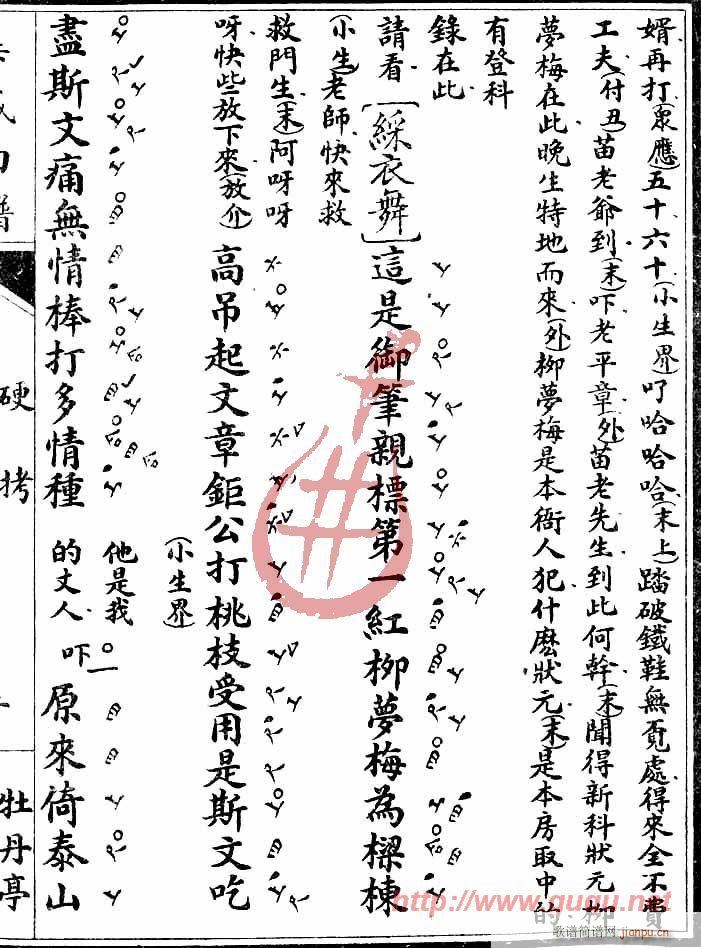 婿再打(衆應)五十六十(小生界)吖哈哈哈(末上)踏破鐵鞋無覓處得來全不費
工夫(付丑)苗老爺到(末)吓老平章(外)苗老先生到此何幹(末)聞得新科狀元柳
夢梅在此晚生特地而來(外)柳夢梅是本衙人犯什麽狀元(末)是本房取中的
有登科
錄在此
請看[綵衣舞]這是御筆親標第一紅柳夢梅為樑棟
(小生)老師快來救
救門生(末)阿呀呀
呀快些放下來(放介)高吊起文章鉅公打桃枝受用是斯文吃
(小生界)
盡斯文痛無情棒打多情種
他是我
的丈人吓原來倚泰山
硬拷
牡丹亭
http://www.guqu.net
的柳費
歌谱简谱网
jianpu.cn